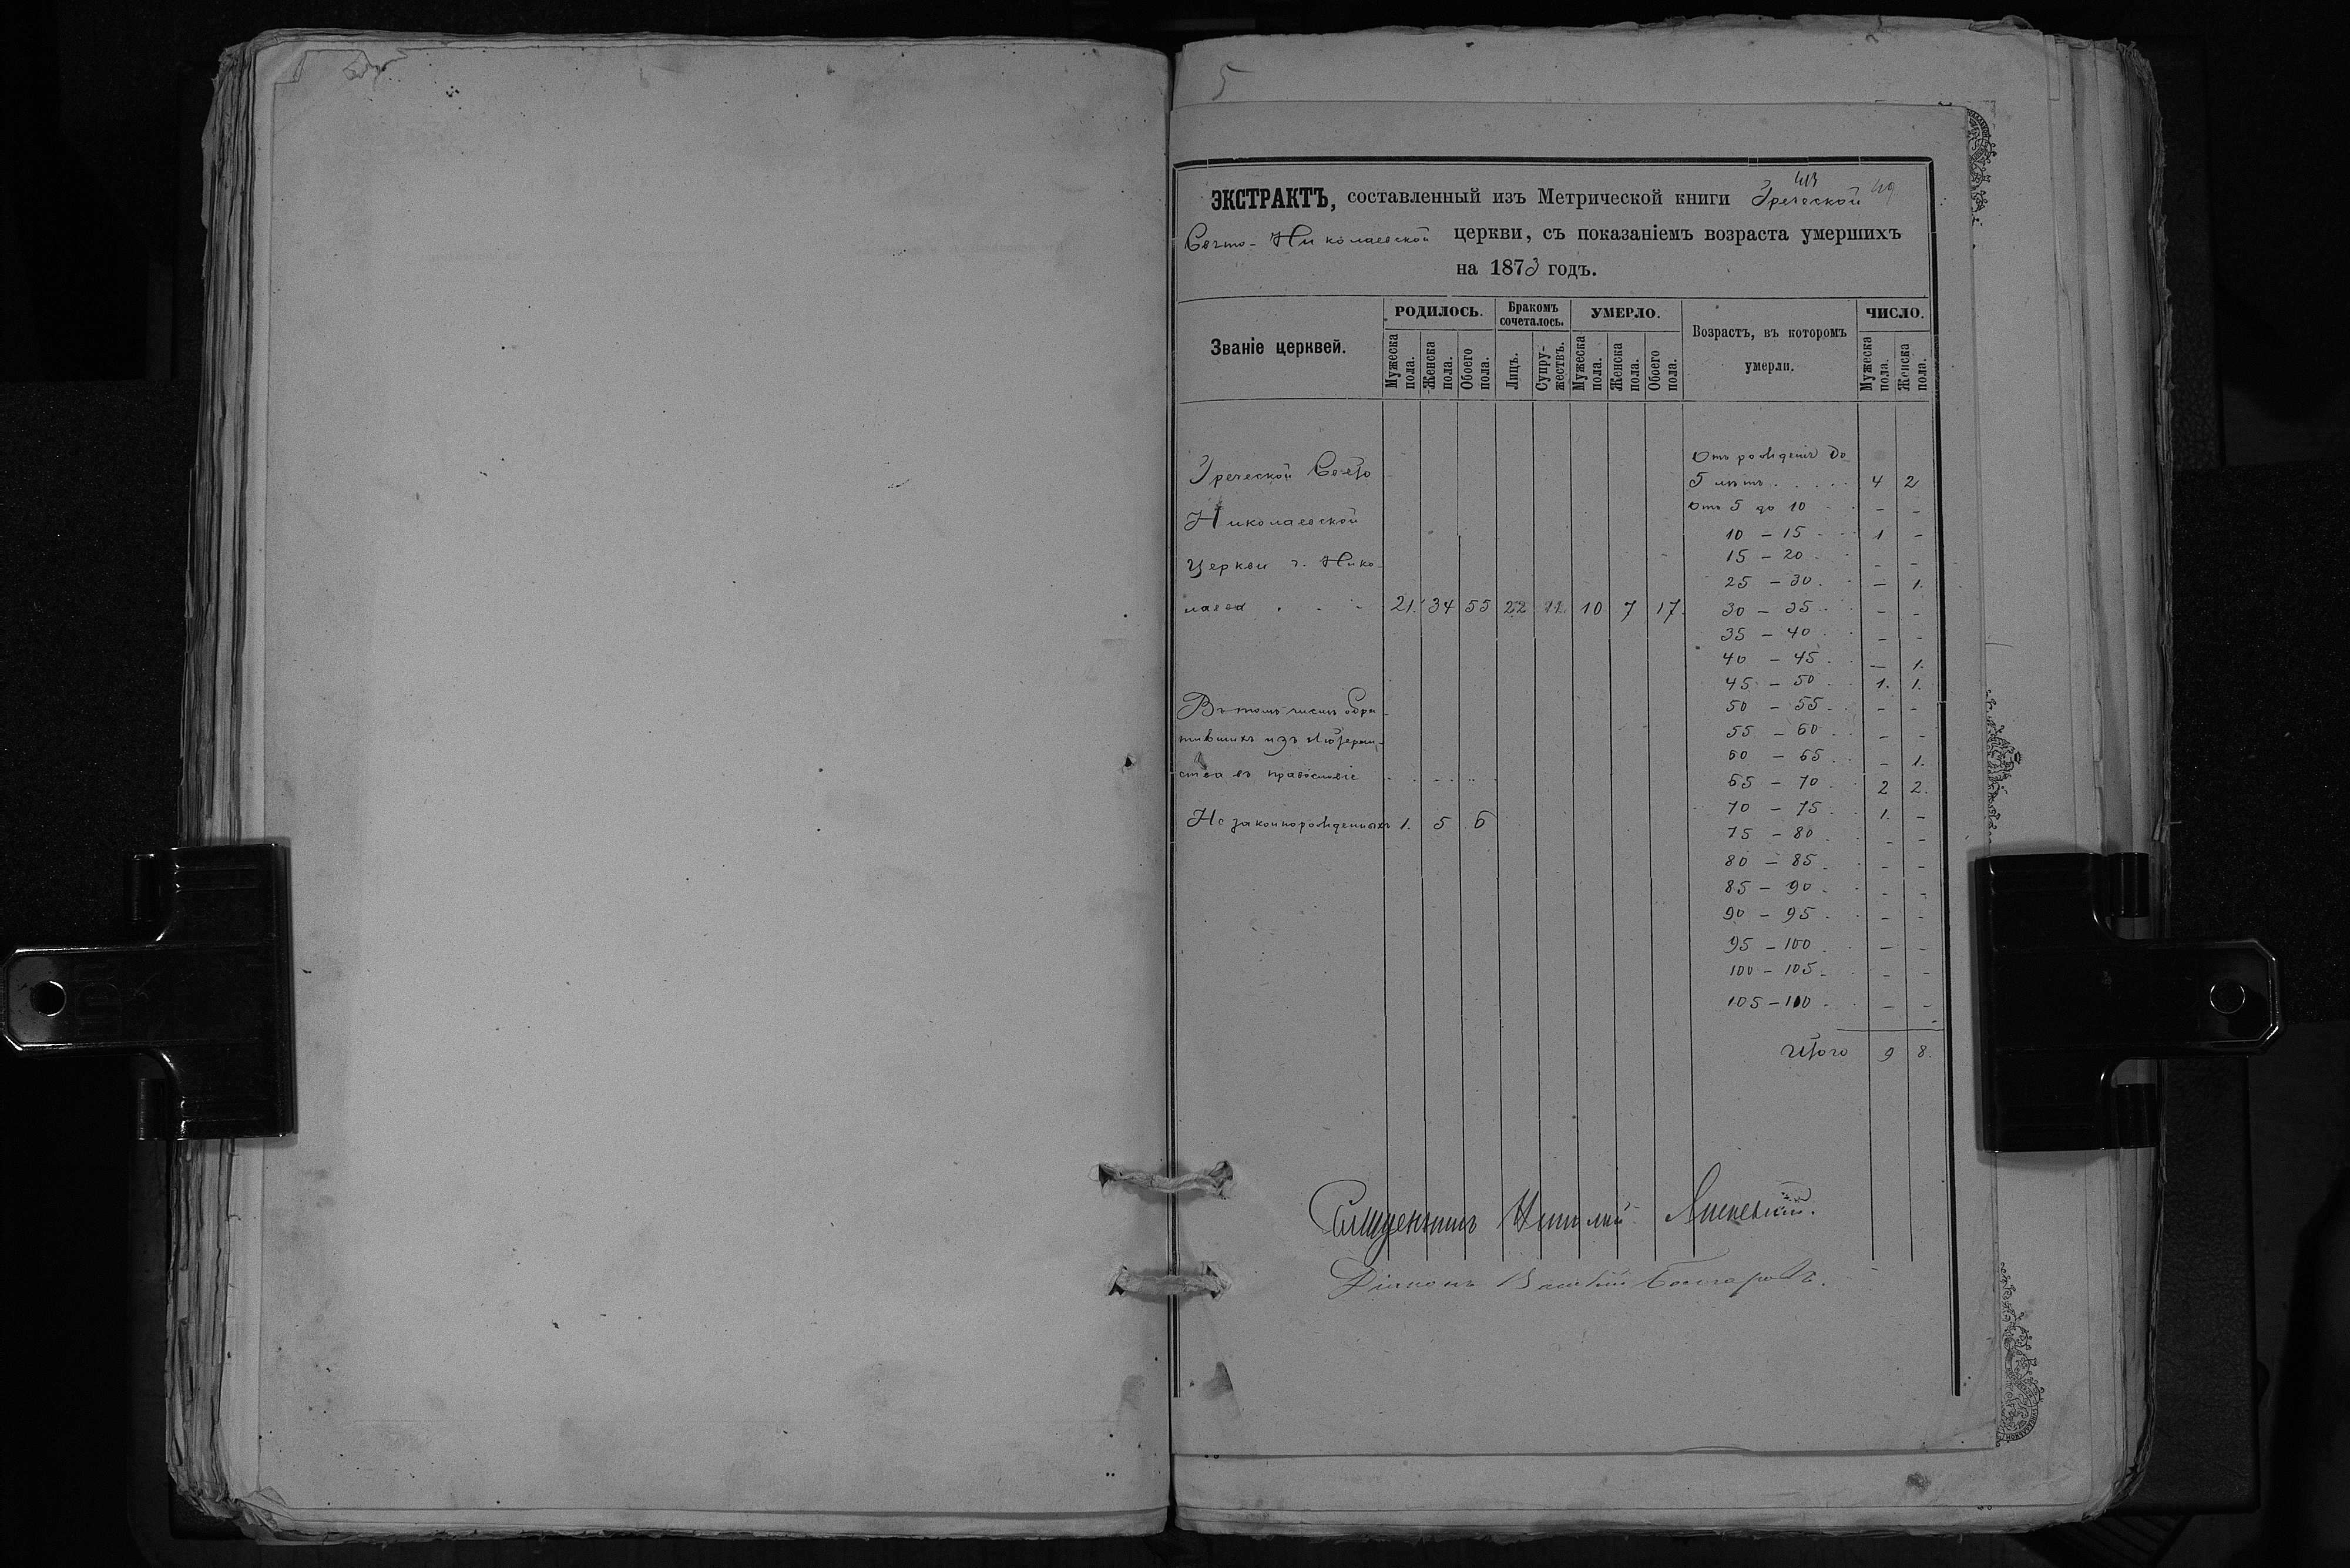 5
ЭКСТРАКТЪ, составленный изъ Метрической книги Греческой 49
Свято-Николаевской церкви, съ показаніемъ возраста умершихъ
на 1873 годъ.
Званіе церквей.
РОДИЛОСЬ.
Мужеска пола.
Женска пола.
Обоего пола.
Бракомъ сочеталось.
Лицъ.
Супружествъ.
УМЕРЛО.
Мужеска пола.
Женска пола.
Обоего пола.
Возрастъ, въ которомъ умерли.
ЧИСЛО.
Мужеска пола.
Женска пола.
Греческой Свято
Николаевской
Церкви г. Нико-
лаева . . - 21. 34 55 22 11 10 7 17.
Въ томъ числѣ обра-
тившихъ изъ Лютеран-
ства въ православіе
Незаконнорожденныхъ 1. 5 6
Отъ рожденія до
5 лѣтъ . . . . . 4 2
Отъ 5 до 10 - -
10 - 15 1 -
15 - 20 - -
25 - 30 - 1.
30 - 35 - -
35 - 40 - -
40 - 45 - 1.
45 - 50 1. 1.
50 - 55 - -
55 - 60 - -
60 - 65 - 1.
65 - 70 2 2.
70 - 75 1. -
75 - 80 - -
80 - 85 - -
85 - 90 - -
90 - 95 - -
95 - 100 - -
100 - 105 - -
105 - 110 - -
Итого 9 8.
Священникъ
Діаконъ Василій Болгаровъ.